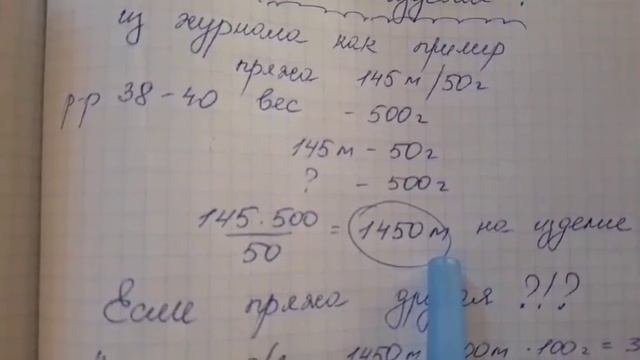 из журнала как пример
пряжа 145м/50г
р-р 38-40 вес - 500г
145м - 50г
? - 500г
145·500
50
= 1450м на изделие
Если пряжа другая ?!?
1450м · 100г = 3